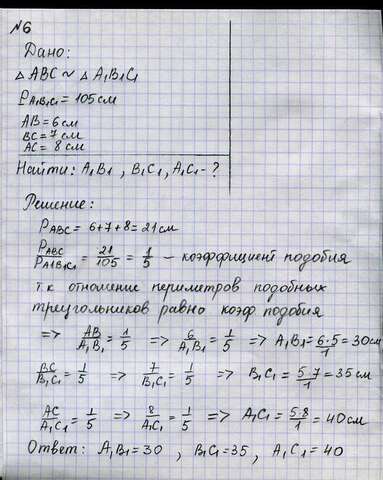 №6
Дано:
△ABC ~ △A₁B₁C₁
P A₁B₁C₁ = 105 см
AB = 6 см
BC = 7 см
AC = 8 см
Найти: A₁B₁, B₁C₁, A₁C₁ - ?
Решение:
P ABC = 6+7+8 = 21 см
P ABC / P A₁B₁C₁ = 21/105 = 1/5 – коэффициент подобия
т.к отношение периметров подобных
треугольников равно коэф подобия
=> AB/A₁B₁ = 1/5 => 6/A₁B₁ = 1/5 => A₁B₁ = 6·5/1 = 30 см
BC/B₁C₁ = 1/5 => 7/B₁C₁ = 1/5 => B₁C₁ = 5·7/1 = 35 см
AC/A₁C₁ = 1/5 => 8/A₁C₁ = 1/5 => A₁C₁ = 5·8/1 = 40 см
Ответ: A₁B₁ = 30, B₁C₁ = 35, A₁C₁ = 40